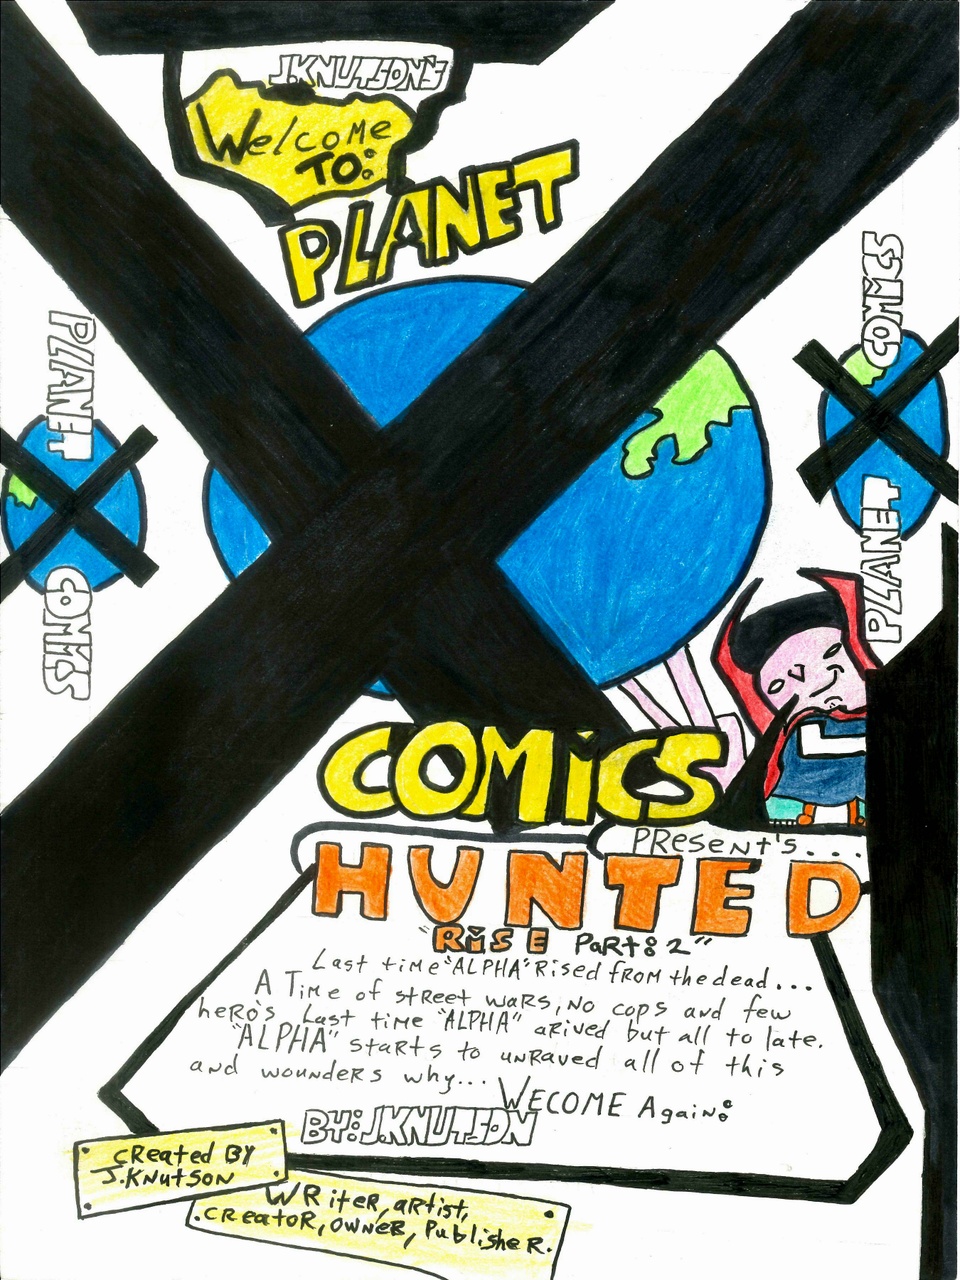 J.KNUTSON'S
Welcome
TO:
PLANET
COMICS
PLANET
COMICS
PLANET
COMICS
PResent's...
HUNTED
"RISE Part: 2"
Last time "ALPHA" Rised from the dead...
A Time of street wars, no cops and few
hero's Last time "ALPHA" arived but all to late.
"ALPHA" starts to unraved all of this
and wounders why... WECOME Again:
BY: J.KNUTSON
created BY
J.Knutson
WRiter, artist,
creatoR, owneR, PublisheR.